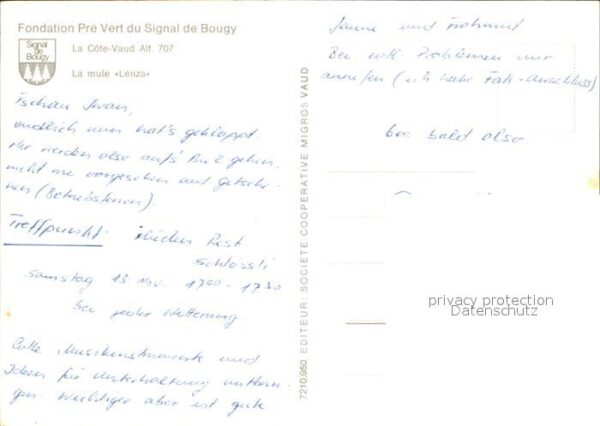 Fondation Pré Vert du Signal de Bougy
Signal
de
Bougy
La Côte-Vaud Alt. 707
La mule «Lenza»
Tschau Ivan,
endlich nun hat's geklappt.
Wir werden also auf's gehen,
nicht wie vorgesehen auf
(Betriebsferien).
Treffpunkt: Rest
Schlössli
Samstag 13 Nov. 1700 - 1730
bei jeder Witterung.
Bitte Musikinstrumente und
Ideen für Unterhaltung mitbrin-
gen. Wichtiger aber ist gute
Laune und Frohmut
Bei evtl. Problemen mir
anrufen (ich habe -Anschluss)
bis bald also
7210.960 EDITEUR: SOCIETE COOPERATIVE MIGROS VAUD
privacy protection
Datenschutz